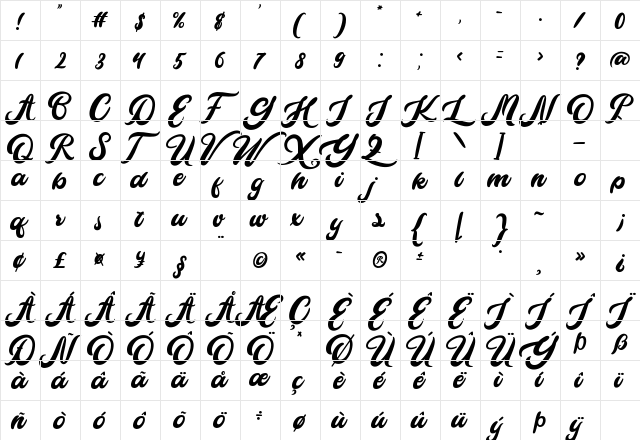 ! " # $ % & ' ( ) * + , - . / 0
1 2 3 4 5 6 7 8 9 : ; < = > ? @
A B C D E F G H I J K L M N O P
Q R S T U V W X Y Z [ \ ] –
a b c d e f g h i j k l m n o p
q r s t u v w x y z { | } ~ ¡
¢ £ ¤ ¥ § © « - ® ± · ¸ » ¿
À Á Â Ã Ä Å Æ Ç È É Ê Ë Ì Í Î Ï
Ð Ñ Ò Ó Ô Õ Ö × Ø Ù Ú Û Ü Ý Þ ß
à á â ã ä å æ ç è é ê ë ì í î ï
ñ ò ó ô õ ö ÷ ø ù ú û ü ý þ ÿ